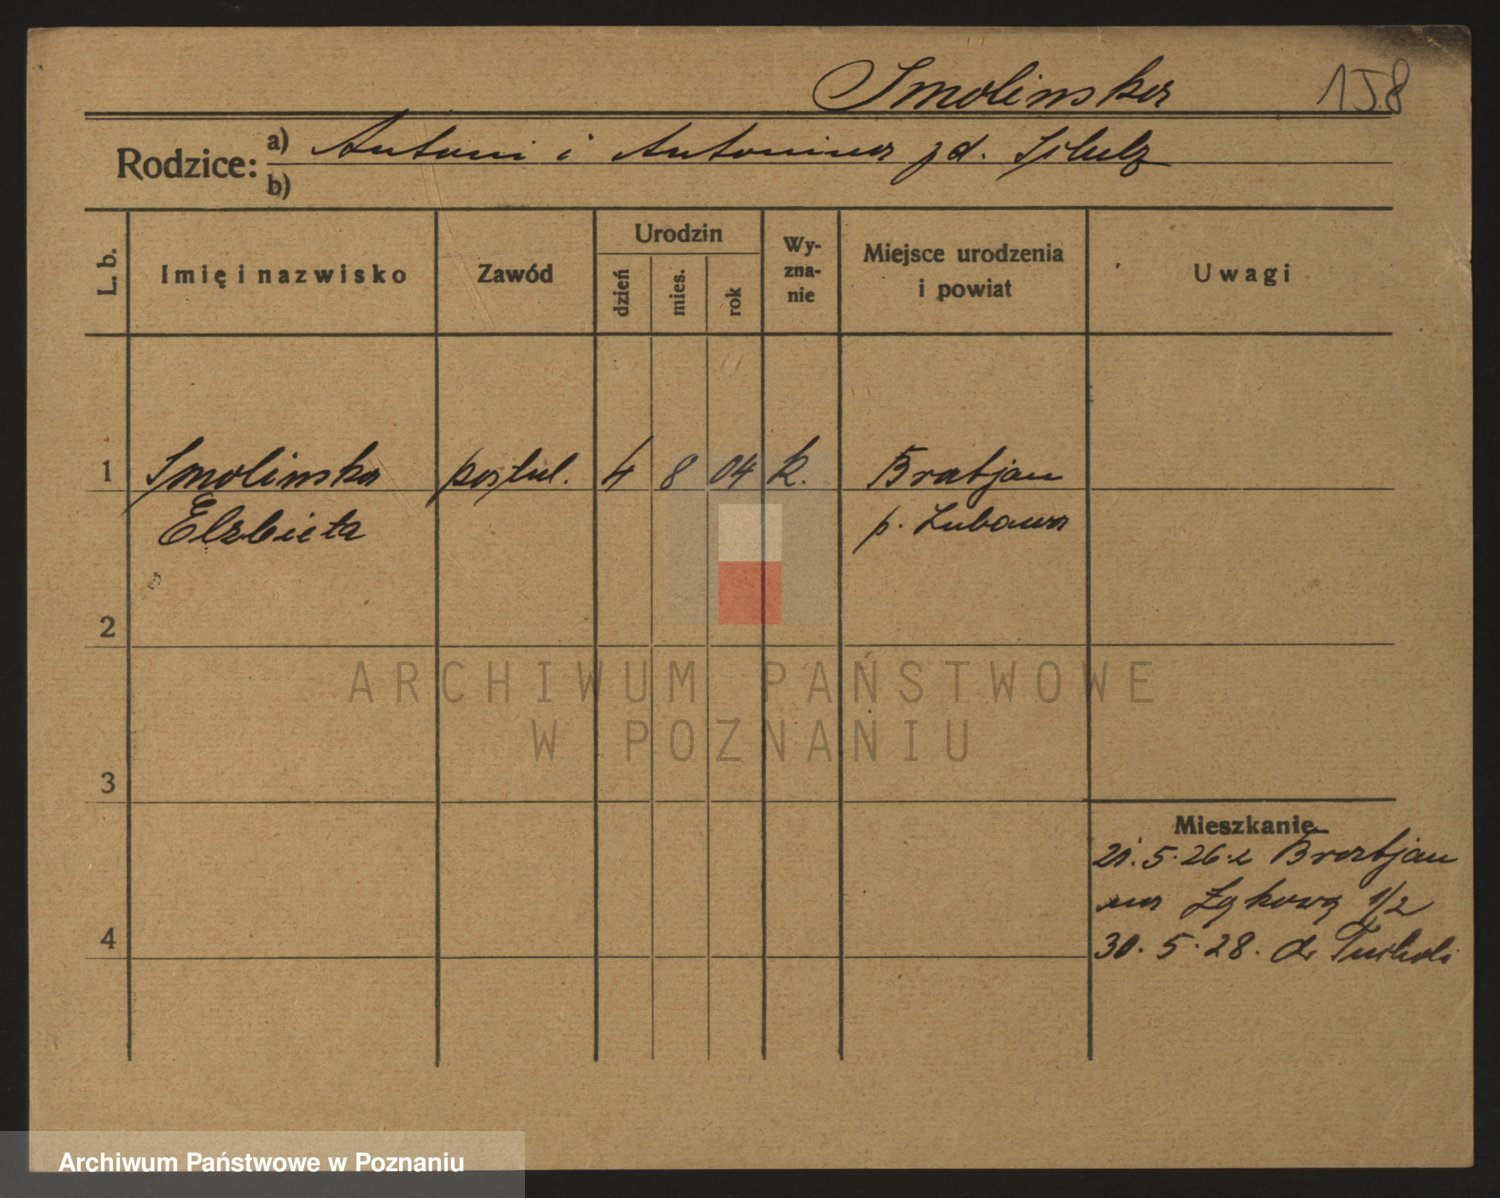 Smolinska 158
Rodzice: a) Antoni i Antonina zd. Schulz
b)
L. b. Imię i nazwisko Zawód Urodzin dzień mies. rok Wyznanie Miejsce urodzenia i powiat Uwagi
1 Smolinska postul. 4 8 04 k. Bratjan
Elzbieta p. Lubawa
2
3
Mieszkanie
21.5.26 z Bratjan
na Łąkową 1/2
4
30.5.28. do Tucholi
ARCHIWUM PAŃSTWOWE
W POZNANIU
Archiwum Państwowe w Poznaniu